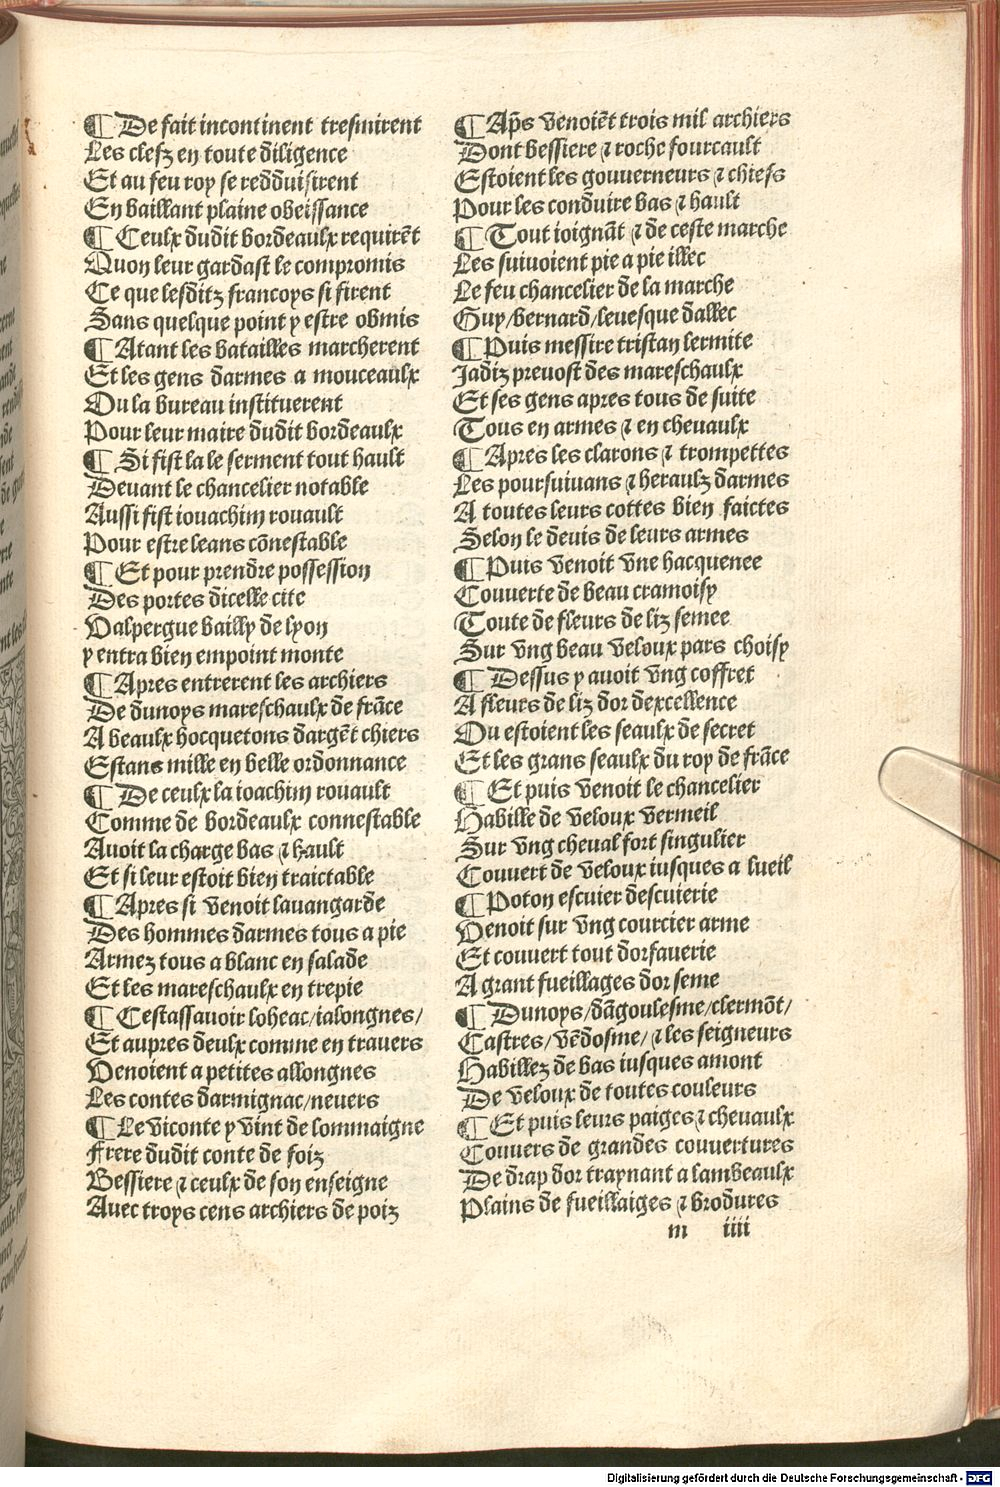 ¶ De fait incontinent tresmirent
Les clefz en toute diligence
Et au feu roy se redduisirent
En baillant plaine obeissance
¶ Ceulx dudit bordeaulx requirēt
Quon leur gardast le compromis
Ce que lesditz francoys si firent
Sans quelque point y estre obmis
¶ Atant les batailles marcherent
Et les gens darmes a mouceaulx
Ou la bureau instituerent
Pour leur maire dudit bordeaulx
¶ Si fist la le serment tout hault
Devant le chancelier notable
Aussi fist iouachim rouault
Pour estre leans cōnestable
¶ Et pour prendre possession
Des portes dicelle cite
Valpergue bailly de lyon
y entra bien empoint monte
¶ Apres entrerent les archiers
De dunoys mareschaulx de frāce
A beaulx hocquetons dargēt chiers
Estans mille en belle ordonnance
¶ De ceulx la ioachim rouault
Comme de bordeaulx connestable
Auoit la charge bas ⁊ hault
Et si leur estoit bien traictable
¶ Apres si venoit lauangarde
Des hommes darmes tous a pie
Armez tous a blanc en salade
Et les mareschaulx en trepie
¶ Cestassauoir loheac/ialongnes/
Et aupres deulx comme en trauers
Venoient a petites allongnes
Les contes darmignac/neuers
¶ Le viconte y vint de lommaigne
Frere dudit conte de foiz
Bessiere ⁊ ceulx de son enseigne
Auec troys cens archiers de poiz
¶ Ap̄s venoiēt trois mil archiers
Dont bessiere ⁊ roche fourcault
Estoient les gouuerneurs ⁊ chiefs
Pour les conduire bas ⁊ hault
¶ Tout ioignāt ⁊ de ceste marche
Les suiuoient pie a pie illec
Le feu chancelier de la marche
Guy/bernard/leuesque dallec
¶ Puis messire tristan lermite
Jadiz preuost des mareschaulx
Et ses gens apres tous de suite
Tous en armes ⁊ en cheuaulx
¶ Apres les clarons ⁊ trompettes
Les poursuiuans ⁊ heraulz darmes
A toutes leurs cottes bien faictes
Selon le deuis de leurs armes
¶ Puis venoit vne hacquenee
Couuerte de beau cramoisy
Toute de fleurs de liz semee
Sur vng beau veloux pars choisy
¶ Dessus y auoit vng coffret
A fleurs de liz dor dexcellence
Ou estoient les seaulx de secret
Et les grans seaulx du roy de frāce
¶ Et puis venoit le chancelier
Habille de veloux vermeil
Sur vng cheual fort singulier
Couuert de veloux iusques a lueil
¶ Poton escuier descuierie
Venoit sur vng courcier arme
Et couuert tout dorfauerie
A grant fueillages dor seme
¶ Dunoys/dāgoulesme/clermōt/
Castres/vēdosme/⁊ les seigneurs
Habillez de bas iusques amont
De veloux de toutes couleurs
¶ Et puis leurs paiges ⁊ cheuaulx
Couuers de grandes couuertures
De drap dor traynant a lambeaulx
Plains de fueillaiges ⁊ brodures
m iiii
Digitalisierung gefördert durch die Deutsche Forschungsgemeinschaft - DFG